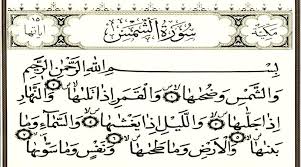 مكية سُورَةُ الشَّمْسِ ١٥ آياتها
بِسْمِ اللهِ الرَّحْمٰنِ الرَّحِيمِ
وَالشَّمْسِ وَضُحَىٰهَا وَالْقَمَرِ إِذَا تَلَىٰهَا وَالنَّهَارِ
إِذَا جَلَّىٰهَا وَاللَّيْلِ إِذَا يَغْشَىٰهَا وَالسَّمَاءِ وَمَا
بَنَىٰهَا وَالْأَرْضِ وَمَا طَحَىٰهَا وَنَفْسٍ وَمَا سَوَّىٰهَا